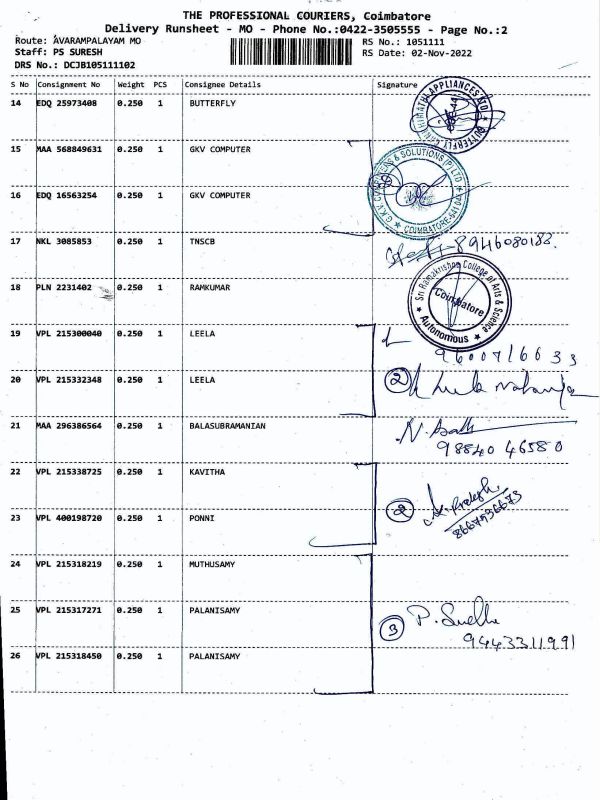 THE PROFESSIONAL COURIERS, Coimbatore
Delivery Runsheet - MO - Phone No.:0422-3505555 - Page No.:2
Route: AVARAMPALAYAM MO
RS No.: 1051111
Staff: PS SURESH
RS Date: 02-Nov-2022
DRS No.: DCJB105111102
S No Consignment No Weight PCS Consignee Details Signature
14 EDQ 25973408 0.250 1 BUTTERFLY
15 MAA 568849631 0.250 1 GKV COMPUTER
G.K.V. COMPUTERS & SOLUTIONS (P) LTD
COIMBATORE-641 004
16 EDQ 16563254 0.250 1 GKV COMPUTER
17 NKL 3085853 0.250 1 TNSCB
8946080188.
18 PLN 2231402 0.250 1 RAMKUMAR
Sri Ramakrishna College of Arts & Science
Coimbatore
Autonomous
19 VPL 215300040 0.250 1 LEELA
9600716633
20 VPL 215332348 0.250 1 LEELA
2
21 MAA 296386564 0.250 1 BALASUBRAMANIAN
98840 46580
22 VPL 215338725 0.250 1 KAVITHA
23 VPL 400198720 0.250 1 PONNI
2
8667936673
24 VPL 215318219 0.250 1 MUTHUSAMY
25 VPL 215317271 0.250 1 PALANISAMY
3
9443311991
26 VPL 215318450 0.250 1 PALANISAMY